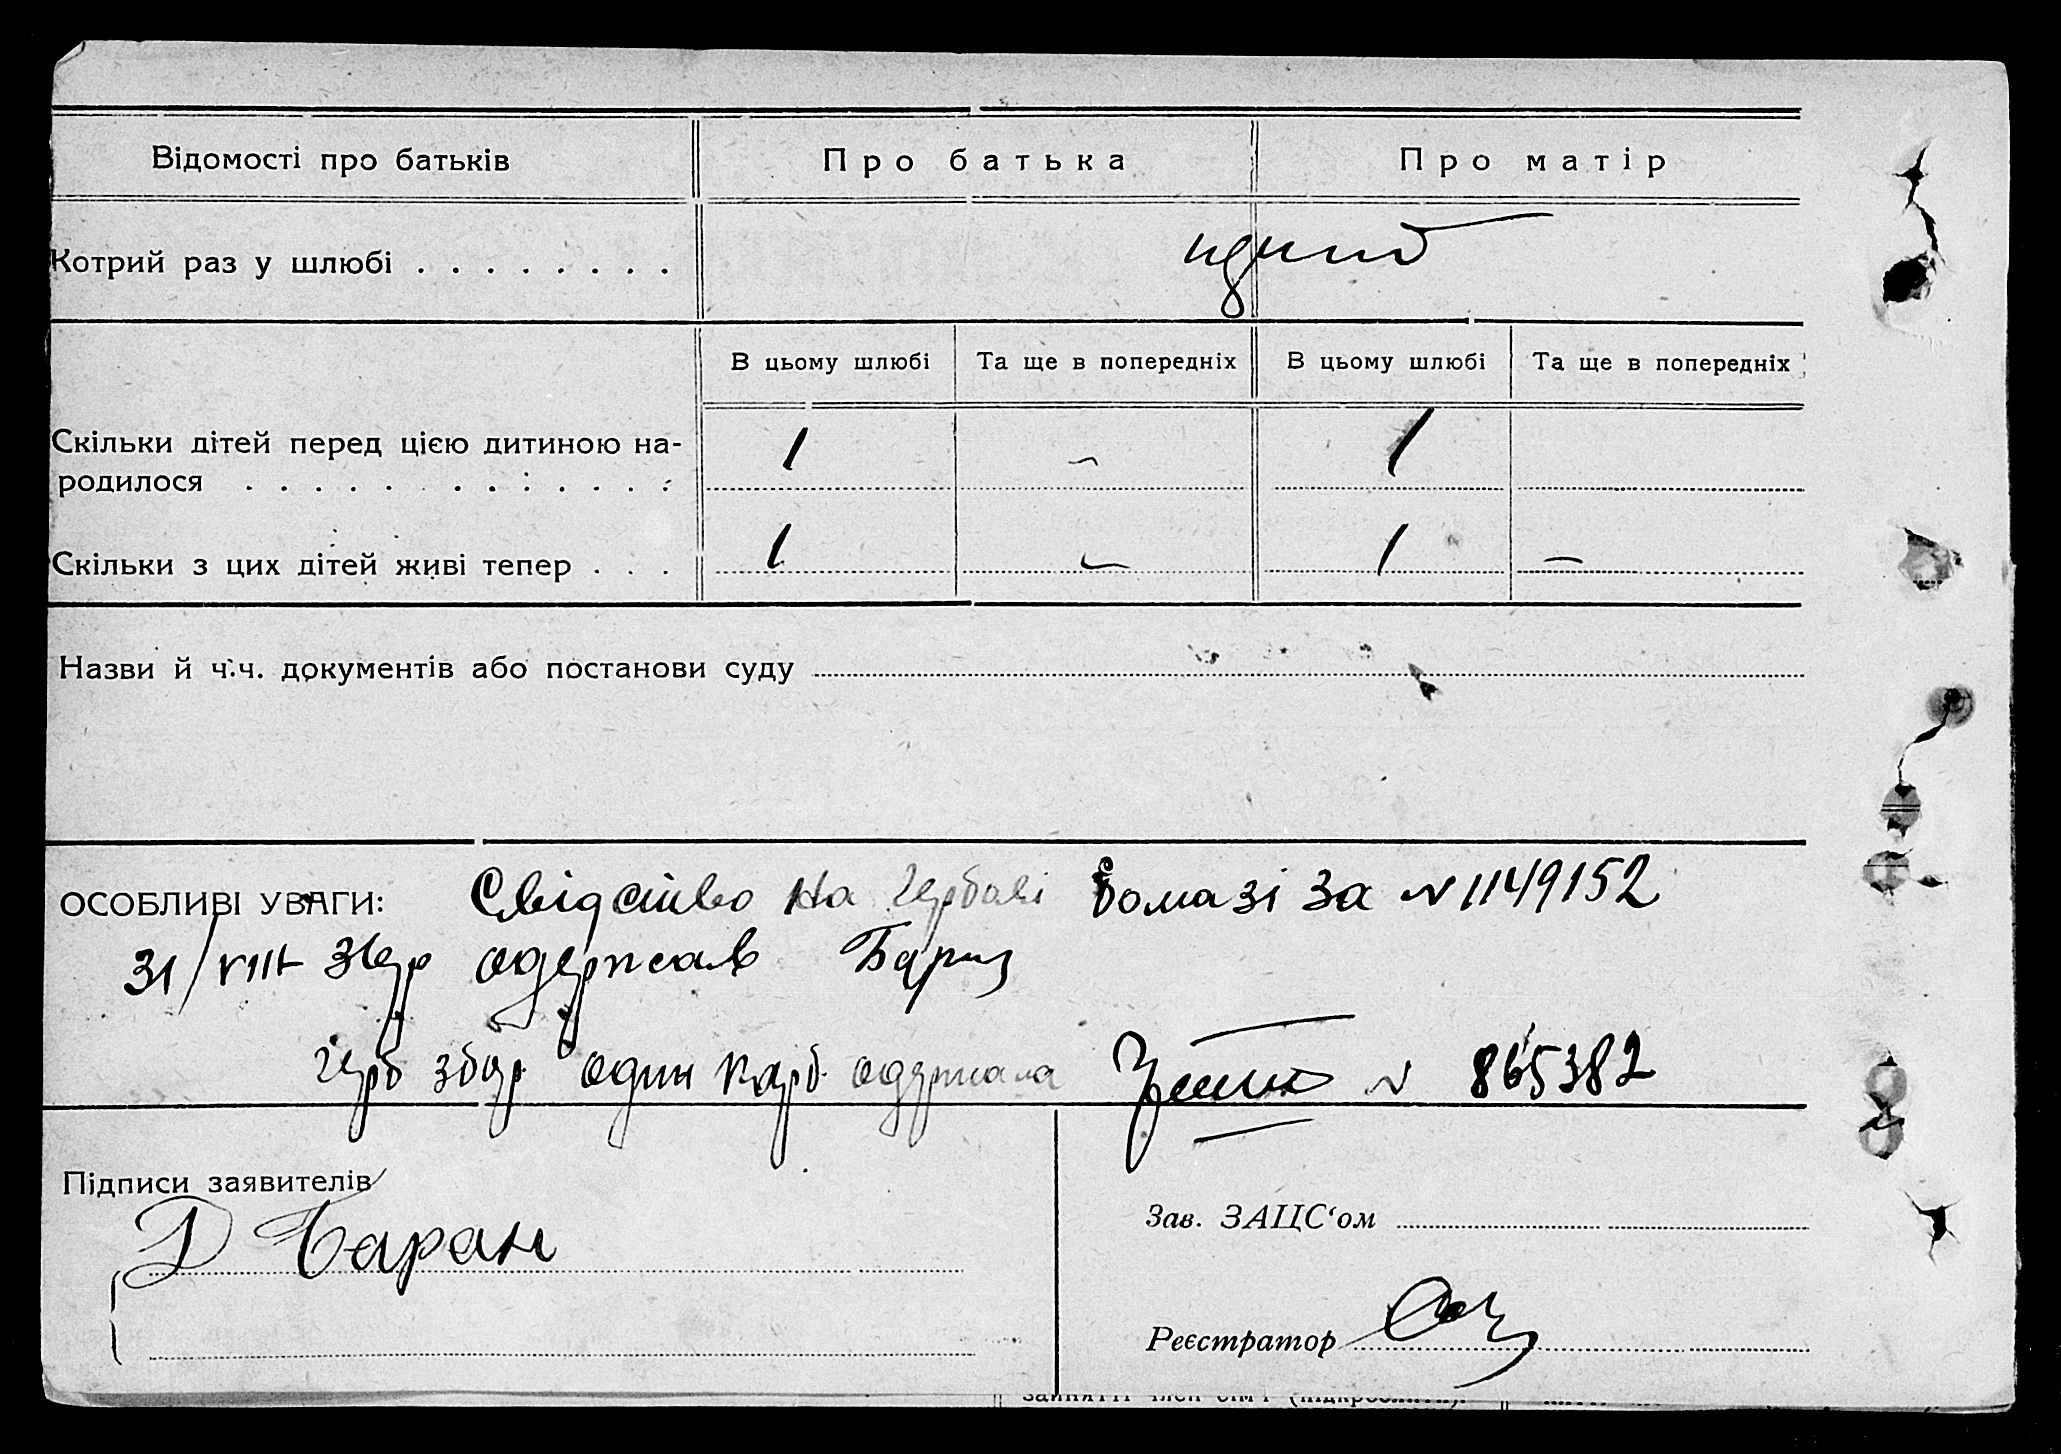 Відомості про батьків
Про батька
Про матір
Котрий раз у шлюбі . . . . . . . .
В цьому шлюбі
Та ще в попередніх
В цьому шлюбі
Та ще в попередніх
Скільки дітей перед цією дитиною на-
родилося . . . . . . . . . . . .
1 – 1
Скільки з цих дітей живі тепер . . .
1 – 1 –
Назви й ч.ч. документів або постанови суду
ОСОБЛИВІ УВАГИ: Свідоцтво на гербові бомазі за № 1149152
31/VIII одержав
герб збор один карб одержала № 865382
Підписи заявителів
Д Баран
Зав. ЗАЦС‘ом
Реєстратор